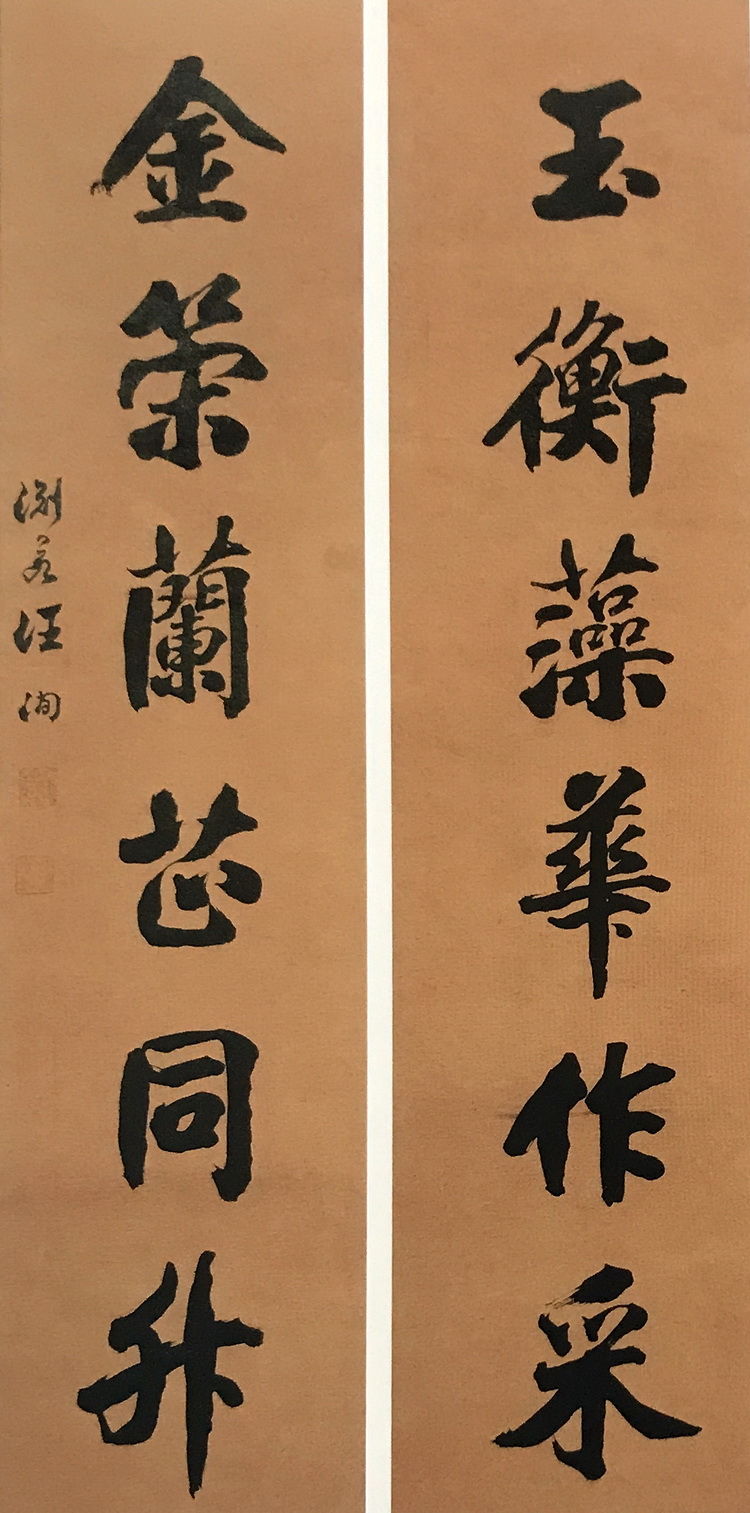 玉衡藻華作采
金策蘭芷同升
淵若汪洵